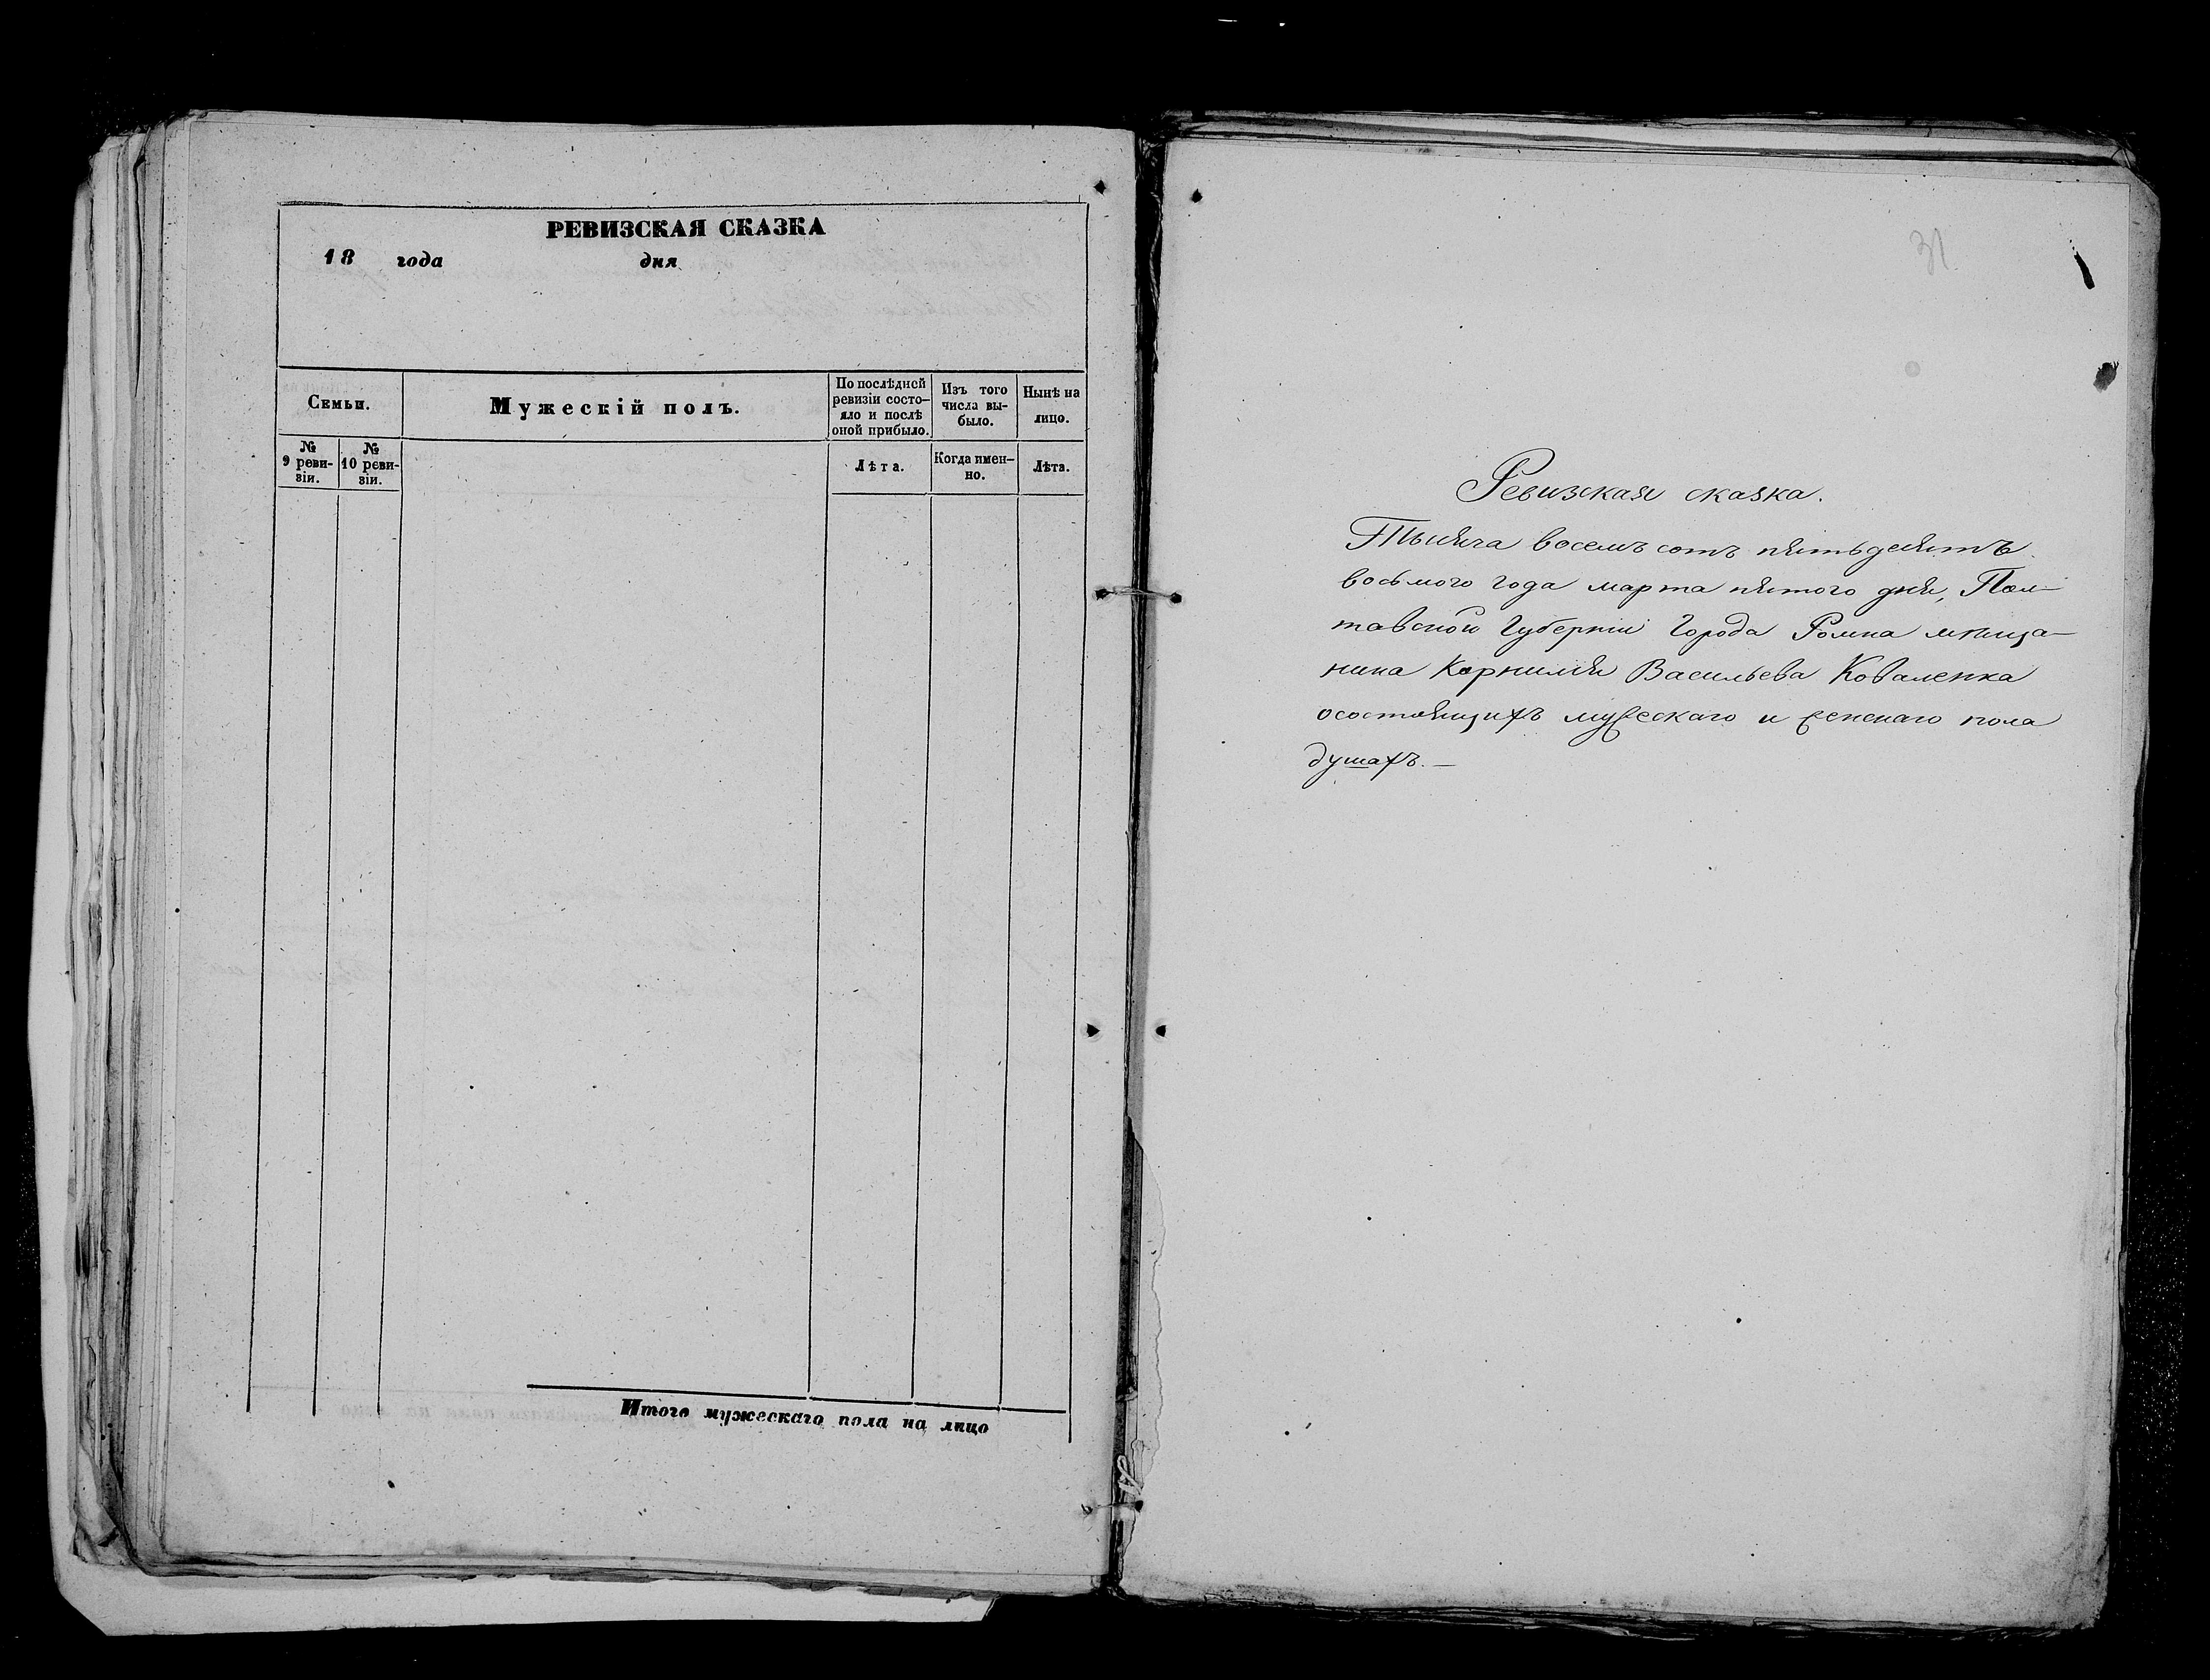 РЕВИЗСКАЯ СКАЗКА
18 года дня
Семьи.
Мужескій полъ.
По послѣдней
ревизіи состо-
яло и послѣ
оной прибыло.
Изъ того
числа вы-
было.
Нынѣ на
лицо.
№
9 реви-
зіи.
№
10 реви-
зіи.
Лѣта.
Когда имен-
но.
Лѣта.
Итого мужескаго пола на лицо
31
Ревизская сказка.
Тысяча восемъ сотъ пятьдесятъ
восьмого года марта пятого дня, Пол-
тавской Губерніи Города Ромна мѣща-
нина Корнилія Васильева Коваленка
осостоящихъ мужескаго и женскаго пола
душахъ.—